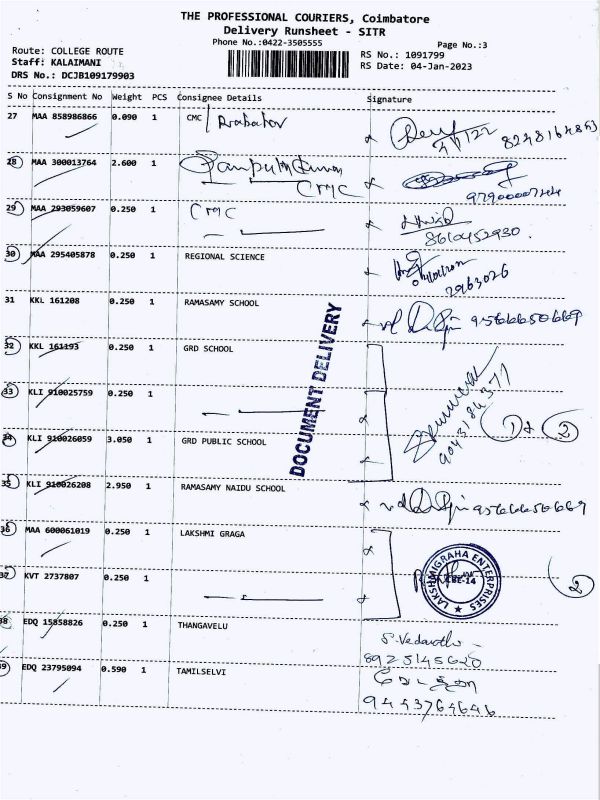 THE PROFESSIONAL COURIERS, Coimbatore
Delivery Runsheet - SITR
Phone No.:0422-3505555
Page No.:3
Route: COLLEGE ROUTE
RS No.: 1091799
Staff: KALAIMANI
RS Date: 04-Jan-2023
DRS No.: DCJB109179903
S No Consignment No Weight PCS Consignee Details Signature
27 MAA 858986866 0.090 1 CMC Prabakar
8248164863
28 MAA 300013764 2.600 1 CMC
29 MAA 293059607 0.250 1 CMC
8610452930.
30 MAA 295405878 0.250 1 REGIONAL SCIENCE
2963026
31 KKL 161208 0.250 1 RAMASAMY SCHOOL 9566650669
32 KKL 161193 0.250 1 GRD SCHOOL
DOCUMENT DELIVERY
33 KLI 910025759 0.250 1
9043184377
1 & 2
34 KLI 910026059 3.050 1 GRD PUBLIC SCHOOL
35 KLI 910026208 2.950 1 RAMASAMY NAIDU SCHOOL 9566650669
36 MAA 600061019 0.250 1 LAKSHMI GRAGA
LAKSHMIGRAHA ENTERPRISES
CBE-14
2
37 KVT 2737807 0.250 1
38 EDQ 15858826 0.250 1 THANGAVELU
8925145620
39 EDQ 23795094 0.590 1 TAMILSELVI
9443764646